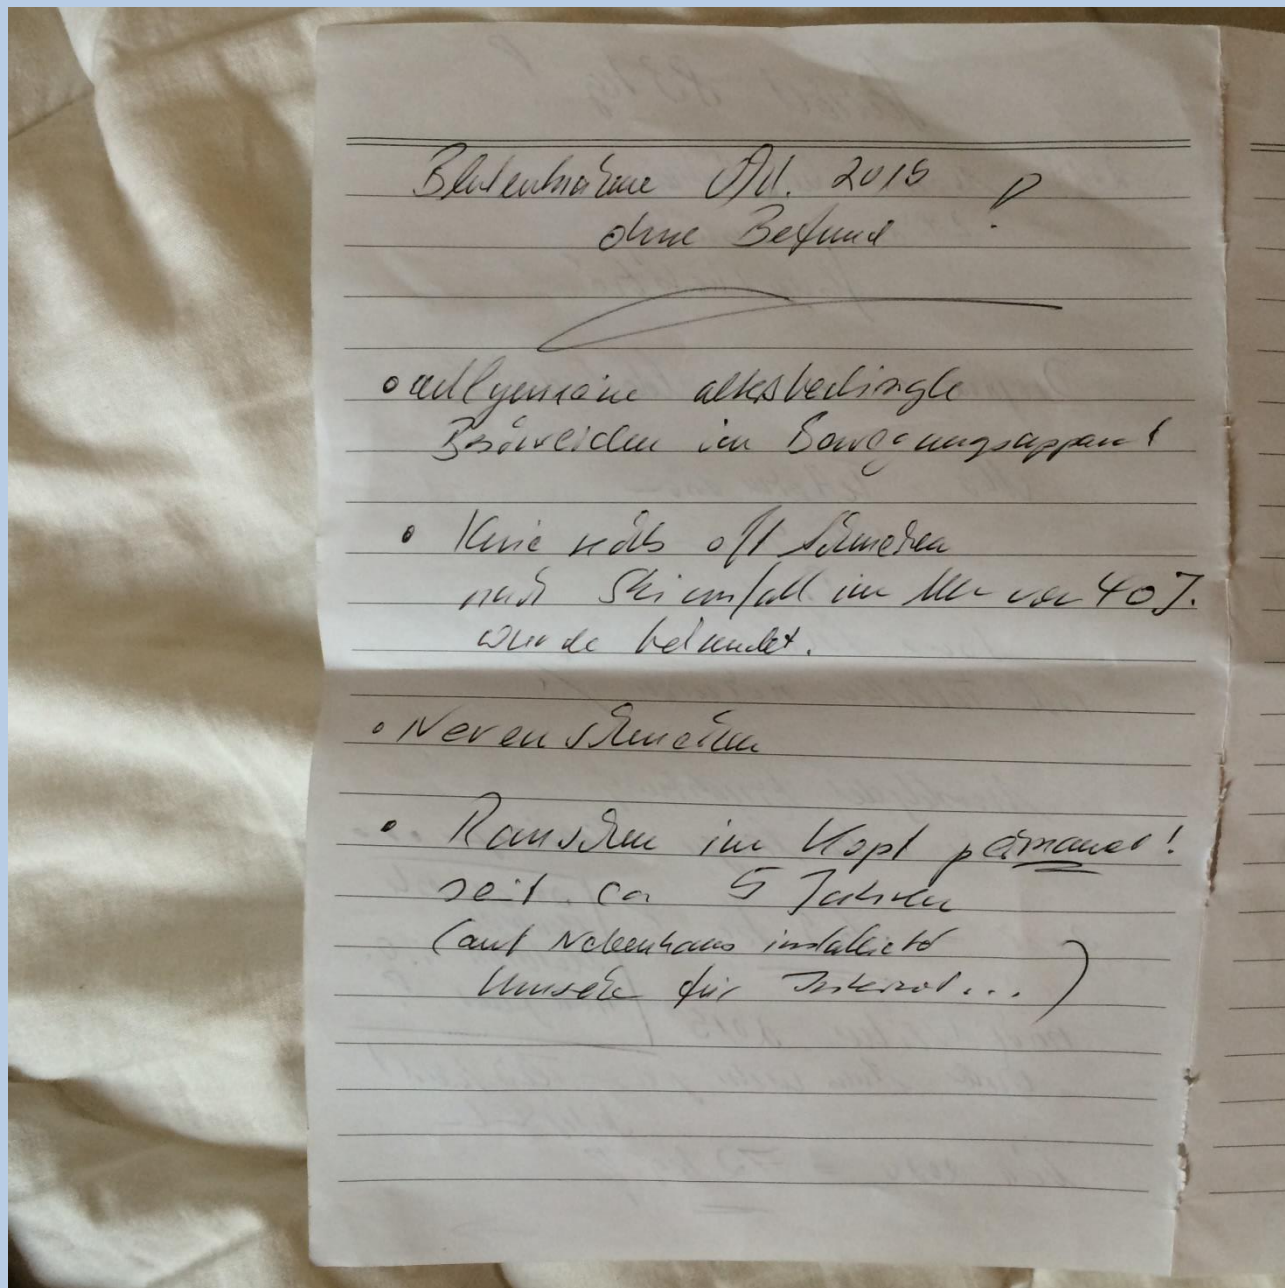 Blutentnahme Okt. 2015 !
ohne Befund
• Allgemeine altersbedingte
Beschwerden im Bewegungsapparat
• Knie rechts oft Schmerzen
nach Skiunfall im Alter von 40 J.
wurde behandelt.
• Nerven schmerzen
• Rauschen im Kopf permanent!
seit ca 5 Jahren
(auf Nebenhaus installierter
für Internet...)